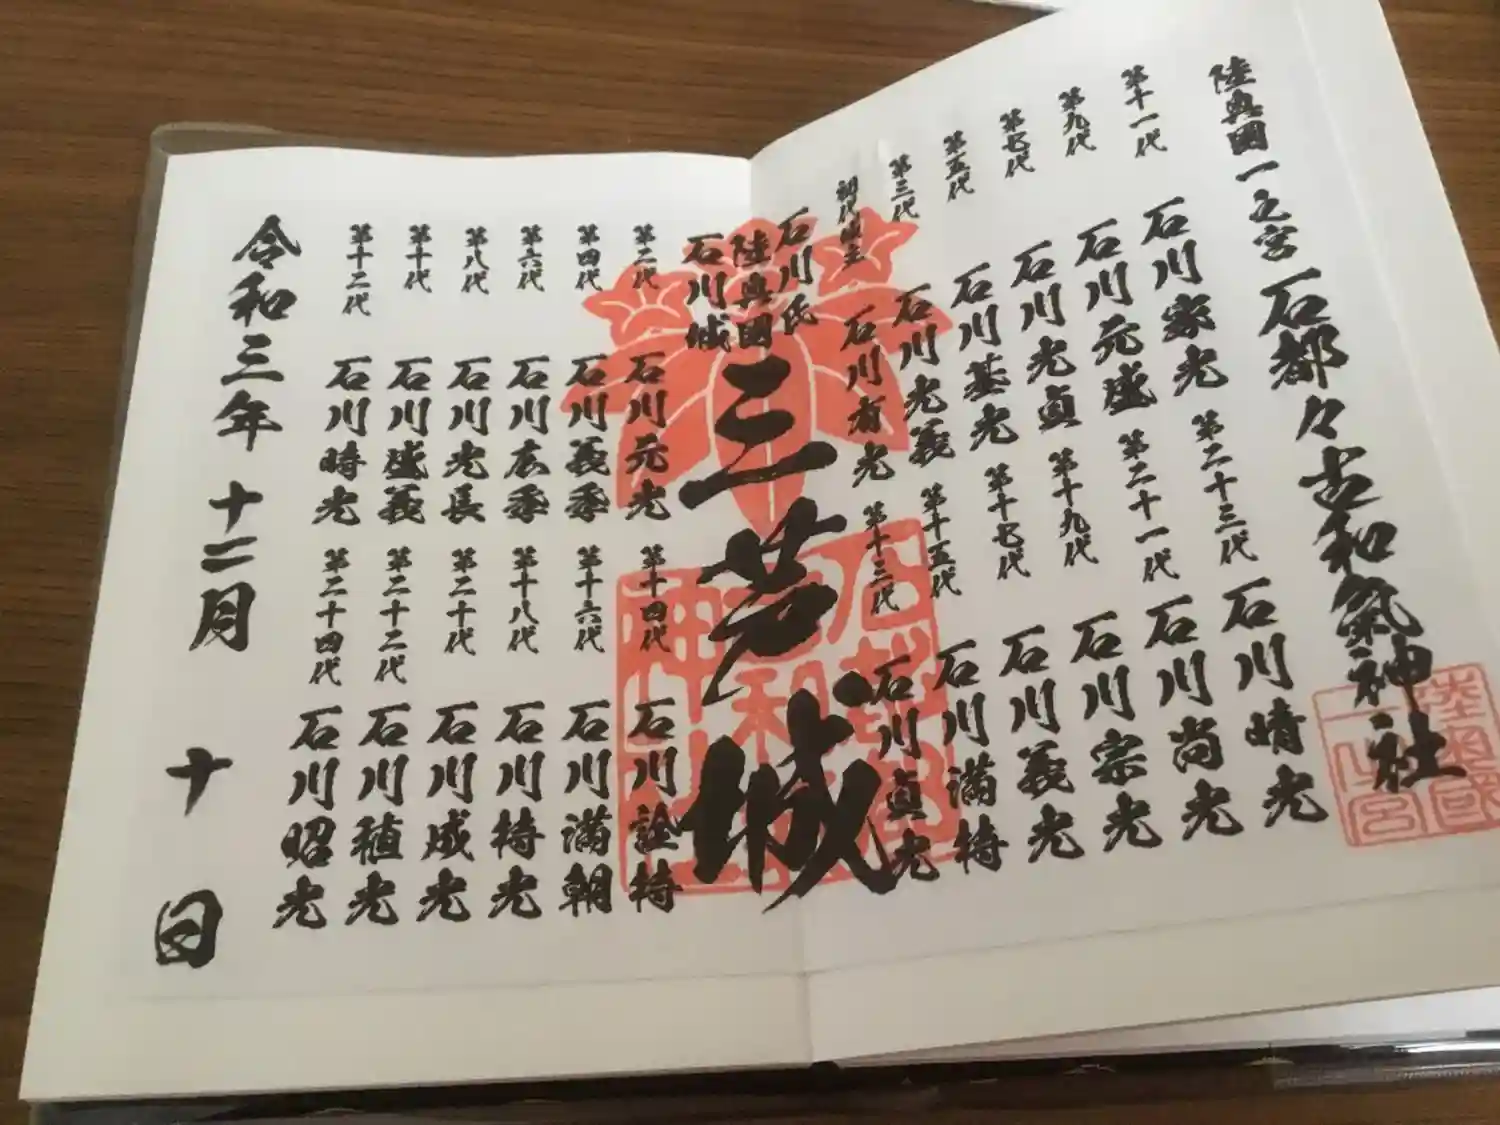 陸奥國一之宮 石都々古和氣神社
第十一代 石川家光 第二十三代 石川晴光
第九代 石川元盛 第二十一代 石川尚光
第七代 石川光貞 第十九代 石川宗光
第五代 石川基光 第十七代 石川義光
第三代 石川光義 第十五代 石川満持
初代城主 石川有光 第十三代 石川貞光
石川氏
陸奥國
石川城
三芦城
第二代 石川元光 第十四代 石川詮持
第四代 石川義季 第十六代 石川満朝
第六代 石川広季 第十八代 石川持光
第八代 石川光長 第二十代 石川成光
第十代 石川盛義 第二十二代 石川稙光
第十二代 石川時光 第二十四代 石川昭光
令和三年 十二月 十日
陸奥國
一之宮